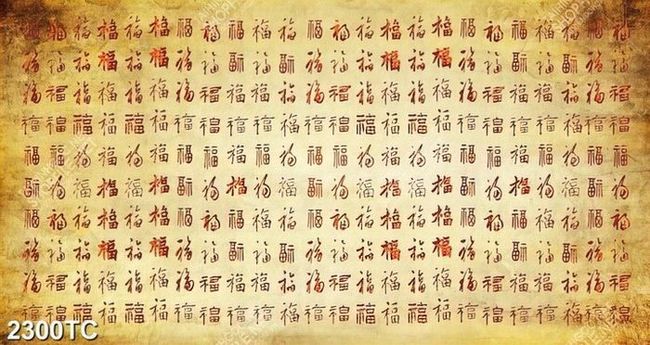 福福福福福福福福福福福福福福福福福福福福福福福福
福福福福福福福福福福福福福福福福福福福福福福福福
福福福福福福福福福福福福福福福福福福福福福福福福
福福福福福福福福福福福福福福福福福福福福福福福福
福福福福福福福福福福福福福福福福福福福福福福福福
福福福福福福福福福福福福福福福福福福福福福福福福
福福福福福福福福福福福福福福福福福福福福福福福福
福福福福福福福福福福福福福福福福福福福福福福福福
福福福福福福福福福福福福福福福福福福福福福福福福
福福福福福福福福福福福福福福福福福福福福福福福福
2300TC